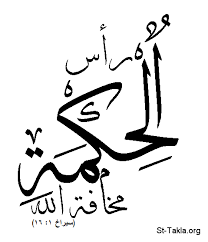 رأس
الْحِكْمَةِ
مخافة الله
(سيراخ ١: ١٦)
St-Takla.org